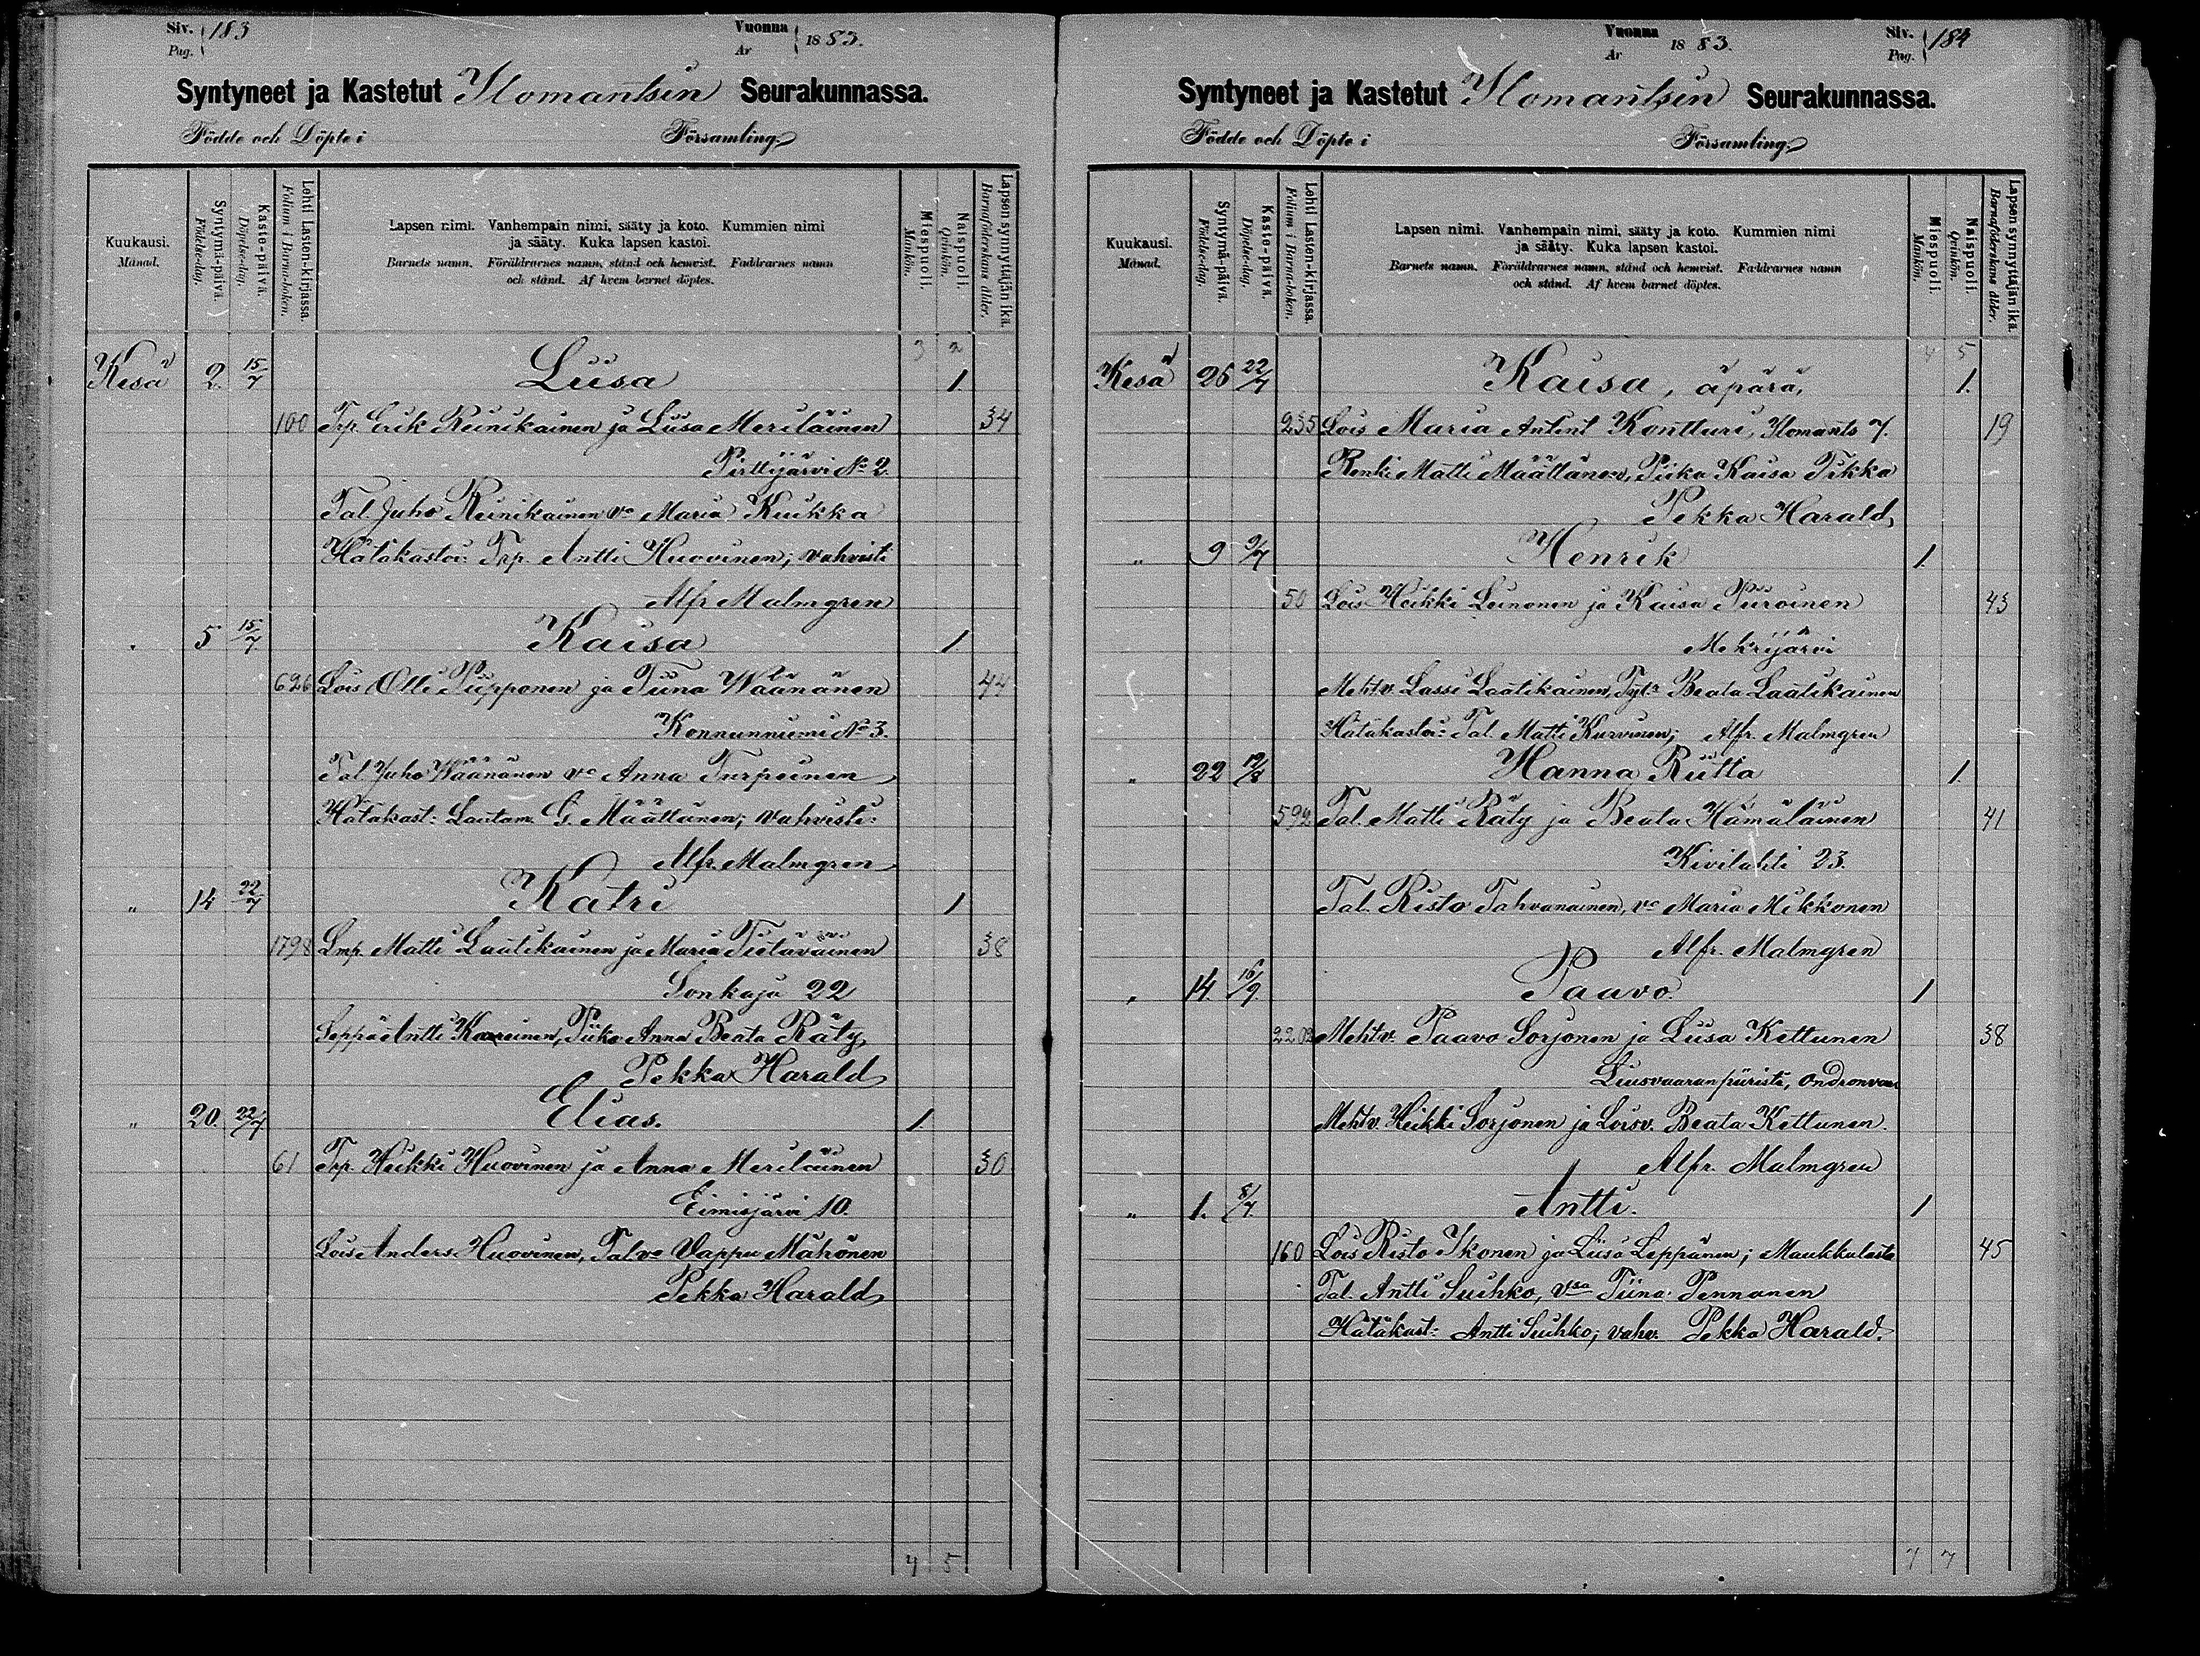 Siv. Pag. 183
Vuonna År 1883.
Syntyneet ja Kastetut Ilomantsin Seurakunnassa.
Födde och Döpte i Församling.
Kuukausi. Månad.
Syntymä-päivä. Födelse-dag.
Kaste-päivä. Döpelse-dag.
Lehti Lasten-kirjassa. Folium i Barna-boken.
Lapsen nimi. Vanhempain nimi, sääty ja koto. Kummien nimi
ja sääty. Kuka lapsen kastoi.
Barnets namn. Föräldrarnes namn, stånd och hemvist. Faddrarnes namn
och stånd. Af hvem barnet döptes.
Miespuoli. Mankön.
Naispuoli. Qvinkön.
Lapsen synnyttäjän ikä. Barnaföderskans ålder.
3 2
Kesä 2. 15/7 Liisa 1
100 Trp. Erik Reinikainen ja Liisa Meriläinen 34
Pirttijärvi No 2.
Tal. Juho Reinikainen vo Maria Kuikka
Hätäkastoi: Trp. Antti Huovinen; vahvisti
Alfr Malmgren
" 5 15/7 Kaisa 1
626 Lois Olli Piipponen ja Tiina Wäänänen 44
Konnunniemi No 3.
Tal Juho Wäänänen vo Anna Turpeinen
Hätäkast: Lautam. G. Määttänen; vahvisti:
Alfr. Malmgren
" 14 22/7 Katri 1
1798 Lmp. Matti Laatikainen ja Maria Tietäväinen 38
Sonkaja 22
Seppä Antti, Piika Anna Beata Räty
Pekka Harald
" 20. 22/7 Elias. 1
61 Trp. Heikki Huovinen ja Anna Meriläinen 30
Eimisjärvi 10.
Lois Anders Huovinen, Tal vo Vappu Mähönen
Pekka Harald
4 5
Vuonna År 1883.
Siv. Pag. 184
Syntyneet ja Kastetut Ilomantsin Seurakunnassa.
Födde och Döpte i Församling.
Kuukausi. Månad.
Syntymä-päivä. Födelse-dag.
Kaste-päivä. Döpelse-dag.
Lehti Lasten-kirjassa. Folium i Barna-boken.
Lapsen nimi. Vanhempain nimi, sääty ja koto. Kummien nimi
ja sääty. Kuka lapsen kastoi.
Barnets namn. Föräldrarnes namn, stånd och hemvist. Faddrarnes namn
och stånd. Af hvem barnet döptes.
Miespuoli. Mankön.
Naispuoli. Qvinkön.
Lapsen synnyttäjän ikä. Barnaföderskans ålder.
4 5
Kesä 26 22/7 Kaisa, äpärä, 1.
235 Lois Maria Antint Kontturi, Ilomants 7. 19
Renki Matti Määttänen, Piika Kaisa Tikka
Pekka Harald
" 9 9/7 Henrik 1.
50 Lois Heikki Leinonen ja Kaisa Puroinen 43
Mekrijärvi
Mehtv. Lassi Laatikainen, Tytr Beata Laatikainen
Hätäkastoi: Tal. Matti Kurvinen; Alfr. Malmgren
" 22 12/8 Hanna Riitta 1.
592 Tal. Matti Räty ja Beata Hämäläinen 41
Kivilahti 23.
Tal. Risto Tahvanainen, vo Maria Mikkonen
Alfr. Malmgren
" 14. 16/9. Paavo. 1
2202 Mehtv. Paavo Sorjonen ja Liisa Kettunen 38
Liusvaaran piiristä,
Mehtv. Heikki Sorjonen ja Loisv. Beata Kettunen.
Alfr. Malmgren
" 1. 8/7. Antti. 1
160 Lois Risto Ikonen ja Liisa Leppänen; Maukkulasta 45
Tal. Antti Suihko, vmo Tiina Pennanen
Hätäkast: Antti Suihko; vahv. Pekka Harald.
7 7